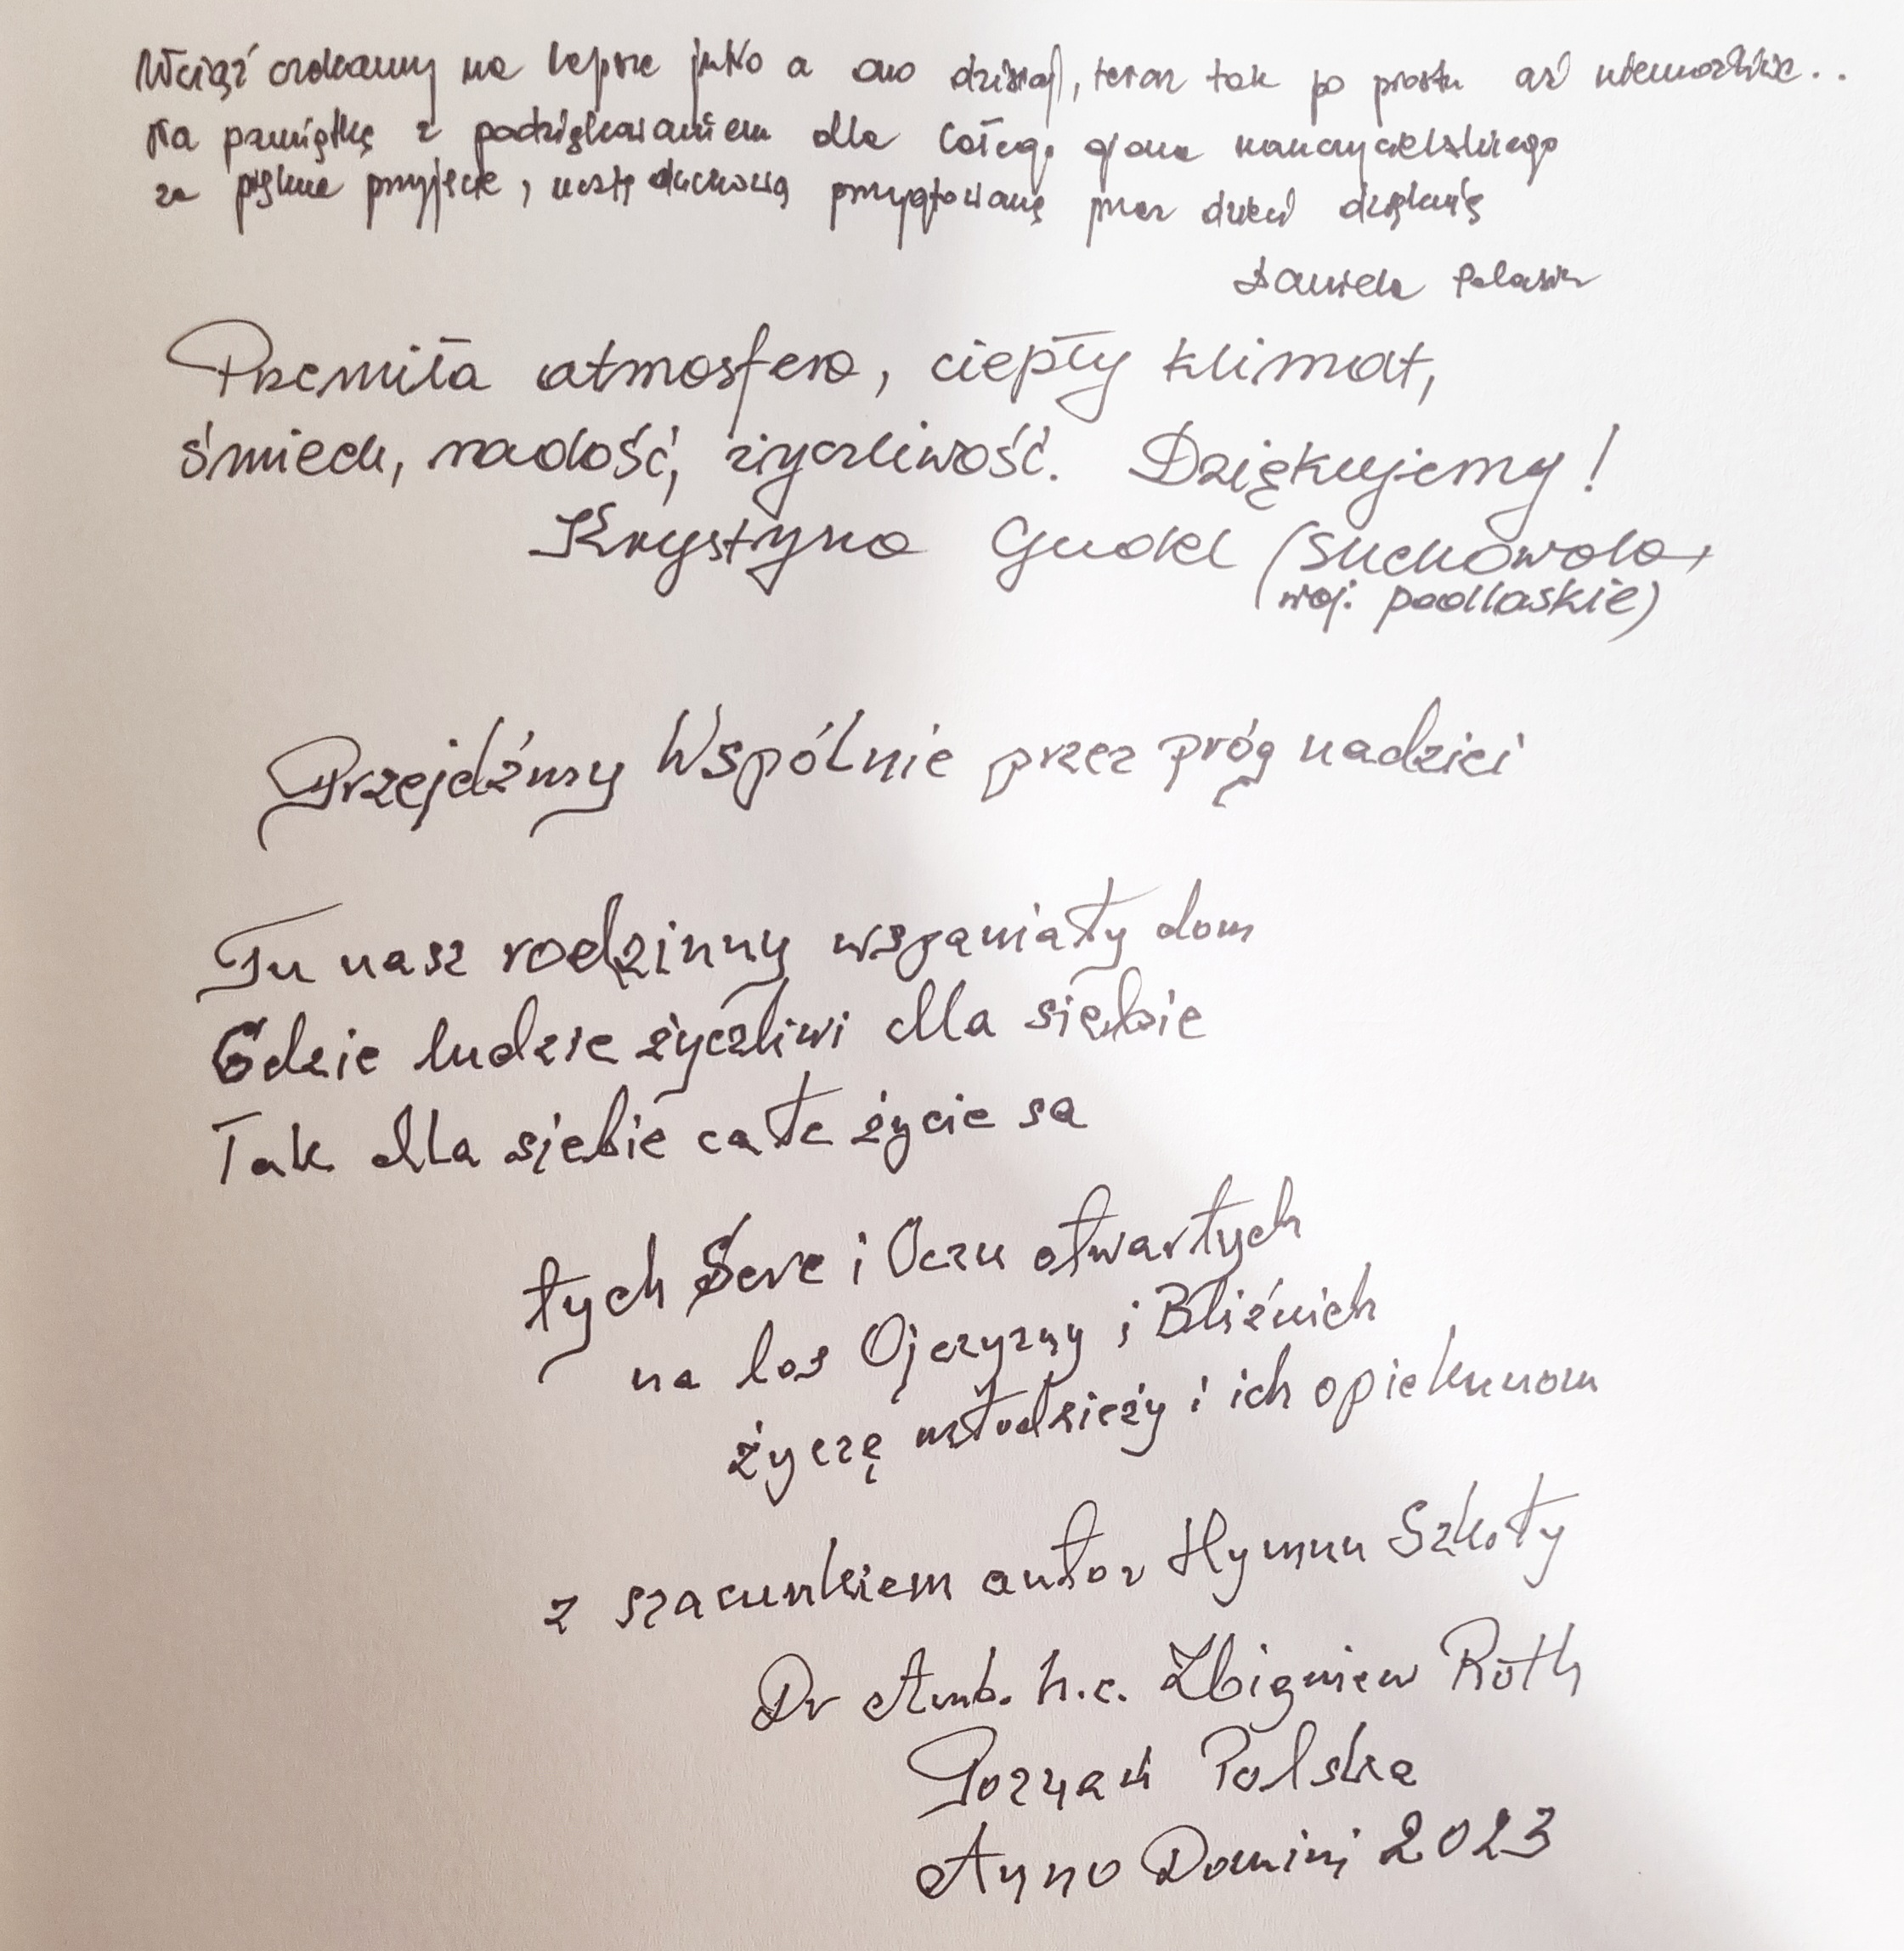 Wciąż czekamy na lepsze jutro a ono dzisiaj, teraz tak po prostu aż niemożliwe..
Na pamiątkę z podziękowaniem dla całego grona nauczycielskiego
za piękne przyjęcie, ucztę duchową przygotowaną przez dzieci dziękuję
Daniela
Przemiła atmosfera, ciepły klimat,
śmiech, radość, życzliwość. Dziękujemy!
Krystyna Gudel (Suchowola,
woj. podlaskie)
Przejdźmy Wspólnie przez próg nadziei
Tu nasz rodzinny wspaniały dom
Gdzie ludzie życzliwi dla siebie
Tak dla siebie całe życie są
tych Serc i Oczu otwartych
na los Ojczyzny i Bliźnich
życzę młodzieży i ich opiekunom
z szacunkiem autor Hymnu Szkoły
Dr Amb. h.c. Zbigniew Roth
Poznań Polska
Anno Domini 2023